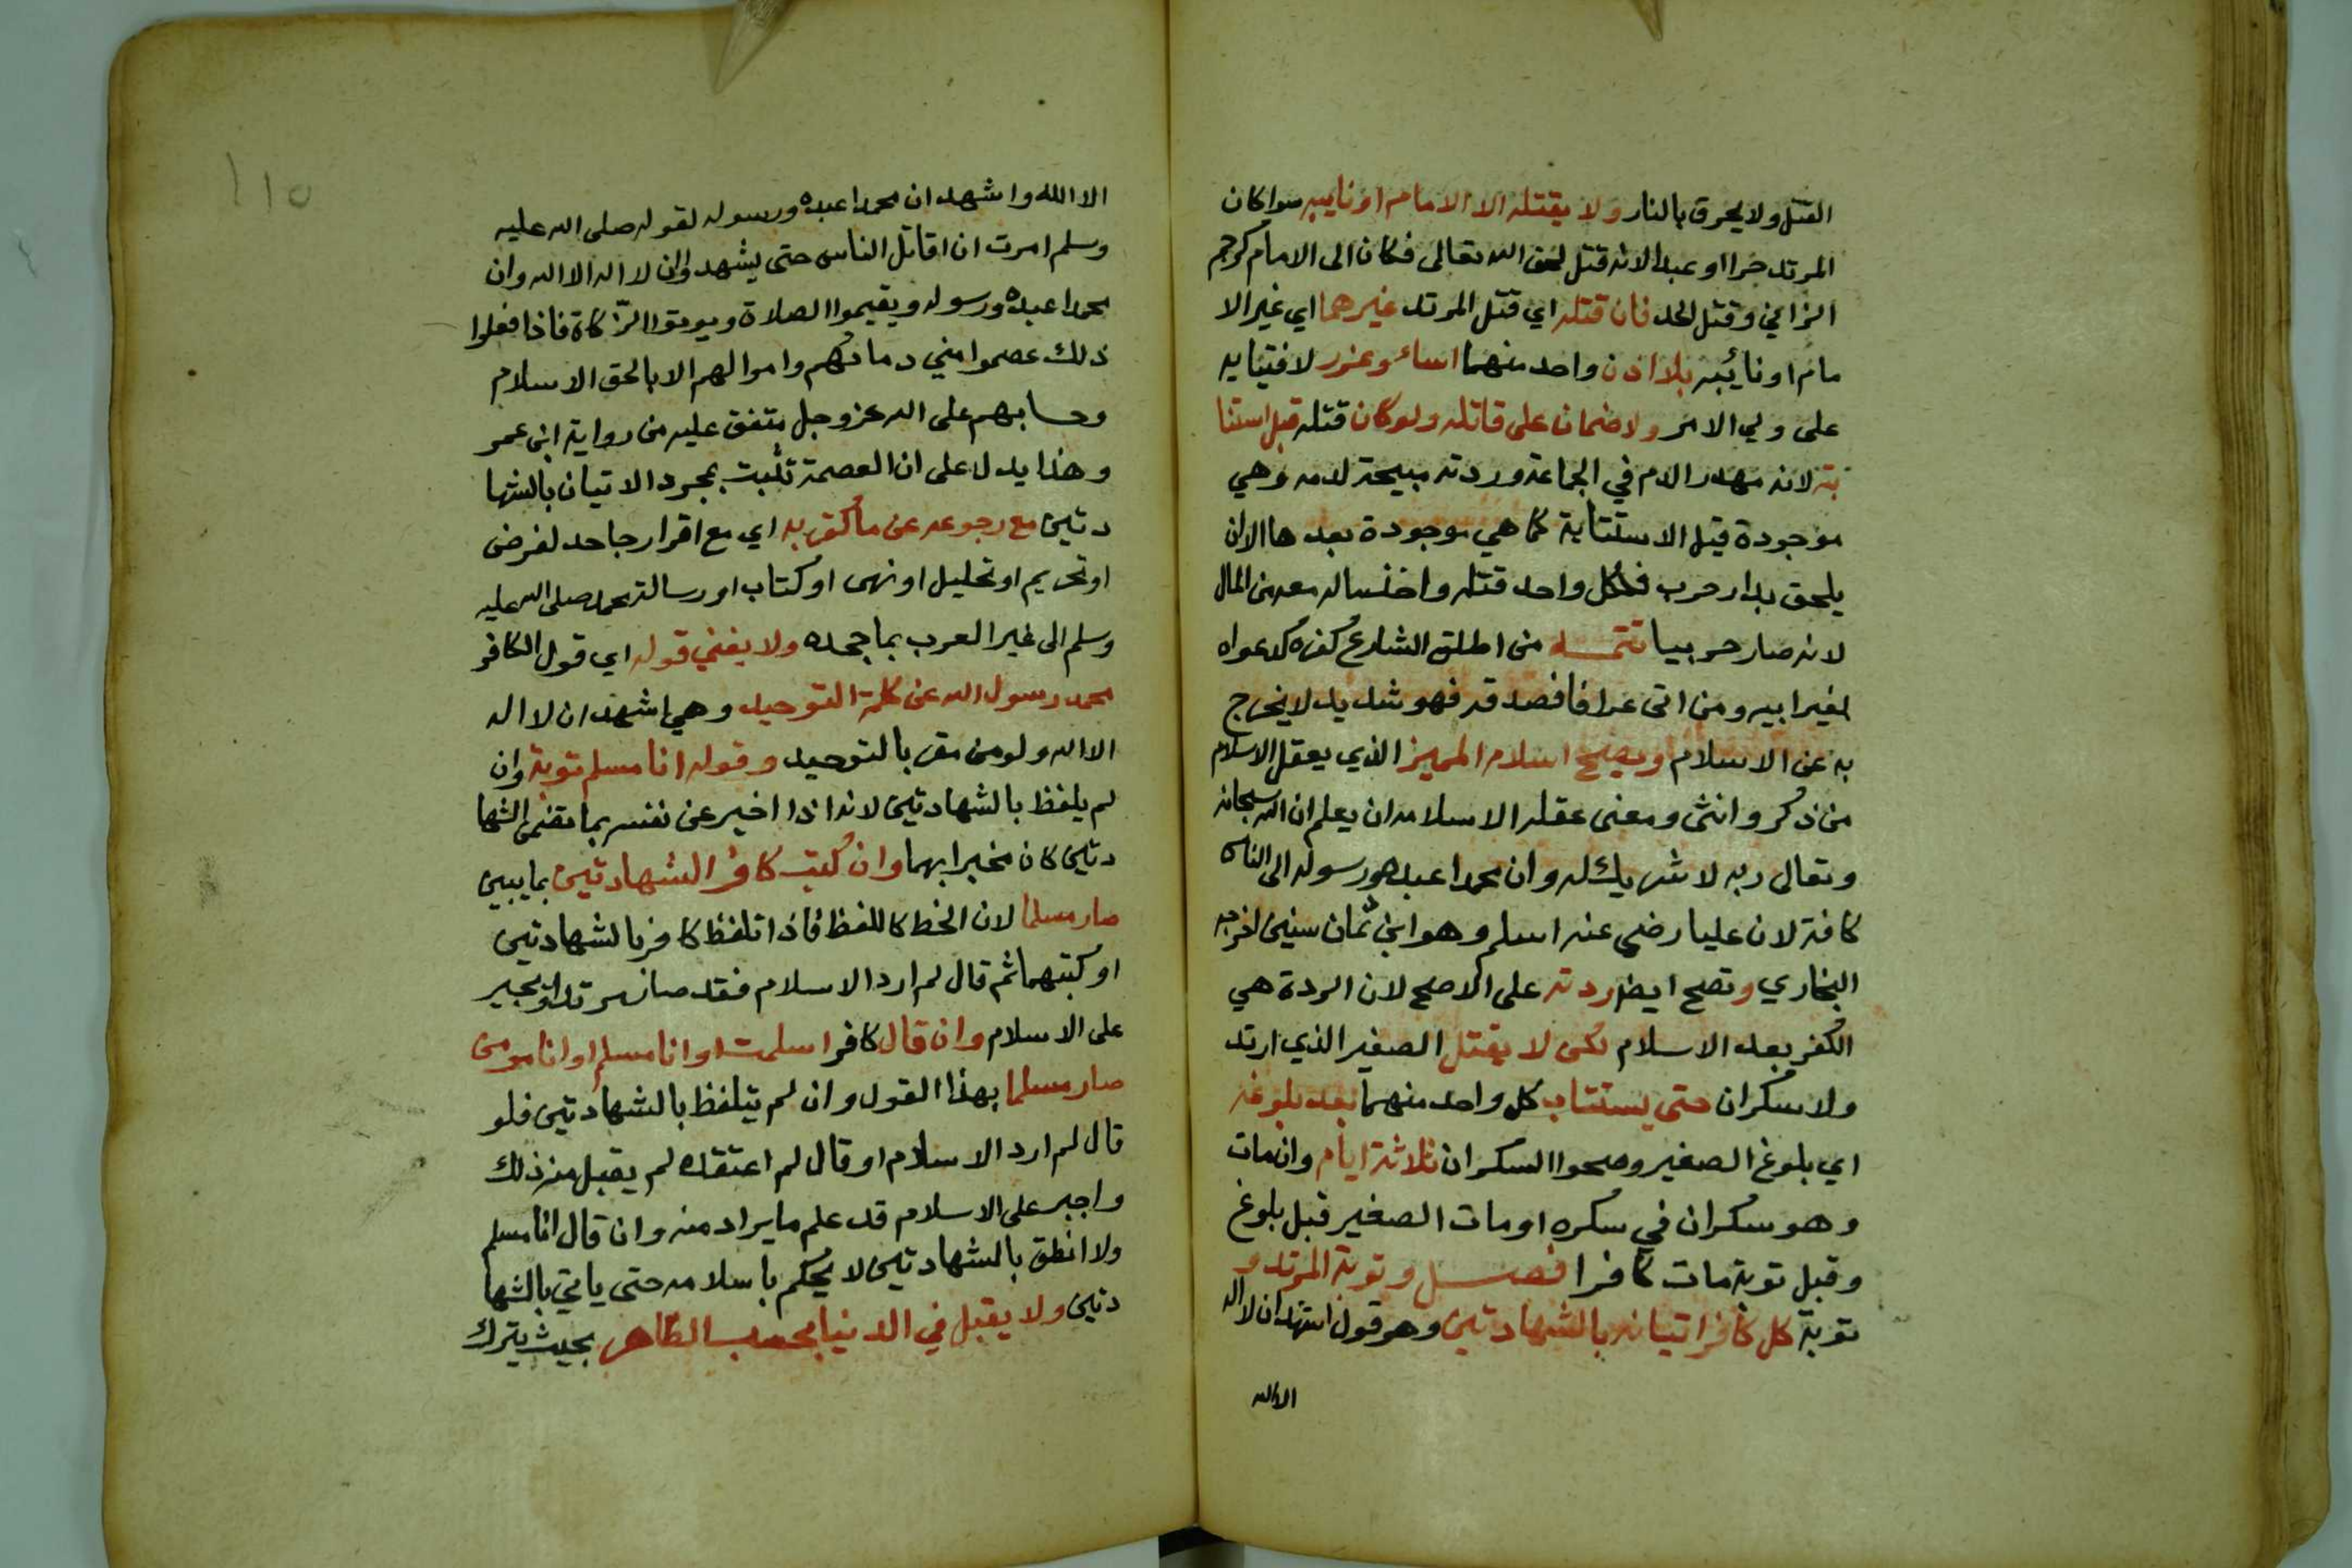 القتل ولا يحرق بالنار ولا يقتله الا الامام او نايبه سوا كان
المرتد حرا او عبدا لانه قتل لحق الله تعالى فكان الى الامام كرجم
الزاني وقتل الحد فان قتله اي قتل المرتد غيرهما اي غير الا
مام او نائبه بلا اذن واحد منهما اساء وعزر لافتياته
على ولي الامر ولا ضمان على قاتله ولو كان قتله قبل استتا
بته لانه مهدر الدم في الجماعة وردته مبيحة لدمه وهي
موجودة قبل الاستتابة كما هي موجودة بعدها الا ان
يلحق بدار حرب فلكل واحد قتله واخذ ماله معه من المال
لانه صار حربيا تتمة من اطلق الشارع كفره كدعواه
لغير ابيه ومن اتى عرافا فصدقه فهو تشديد لا يخرج
به عن الاسلام ويصح اسلام المميز الذي يعقل الاسلام
من ذكر وانثى ومعنى عقله الاسلام ان يعلم ان الله سبحانه
وتعالى ربه لا شريك له وان محمدا عبده ورسوله الى الناس
كافة لان عليا رضي عنه اسلم وهو ابن ثمان سنين اخرجه
البخاري وتصح ايضا ردته على الاصح لان الردة هي
الكفر بعد الاسلام لكن لا يقتل الصغير الذي ارتد
ولا سكران حتى يستتاب كل واحد منهما بعد بلوغه
اي بلوغ الصغير وصحوا السكران ثلاثة ايام وان مات
وهو سكران في سكره او مات الصغير قبل بلوغ
وقبل توبة مات كافرا فصل وتوبة المرتد و
توبة كل كافر اتيانه بالشهادتين وهو قول اشهد ان لا اله
الا الله
١١٥
الا الله واشهد ان محمدا عبده ورسوله لقوله صلى الله عليه
وسلم امرت ان اقاتل الناس حتى يشهدوا ان لا اله الا الله وان
محمدا عبده ورسوله ويقيموا الصلاة ويوتوا الزكاة فاذا فعلوا
ذلك عصموا مني دماءهم واموالهم الا بالحق الاسلام
وحسابهم على الله عز وجل متفق عليه من رواية ابن عمر
وهذا يدل على ان العصمة تثبت بمجرد الاتيان بالشها
دتين مع رجوعه عن ما كفر به اي مع اقرار جاحد لفرض
او تحريم او تحليل او نهى او كتاب او رسالة محمد صلى الله عليه
وسلم الى غير العرب بما جحده ولا يغني قوله اي قول الكافر
محمد رسول الله عن كلمة التوحيد وهي اشهد ان لا اله
الا الله ولو من مقر بالتوحيد وقوله انا مسلم توبة وان
لم يلفظ بالشهادتين لانه اذا اخبر عن نفسه بما تقتضي الشها
دتين كان مخبرا بهما وان كتب كافر الشهادتين بما يبين
صار مسلما لان الخط كاللفظ فاذا تلفظ كافر بالشهادتين
او كتبهما ثم قال لم ارد الاسلام فقد صار مرتدا ويجبر
على الاسلام وان قال كافر اسلمت او انا مسلم او انا مومن
صار مسلما بهذا القول وان لم يتلفظ بالشهادتين فلو
قال لم ارد الاسلام او قال لم اعتقده لم يقبل منه ذلك
واجبر على الاسلام قد علم ما يراد منه وان قال انا مسلم
ولا انطق بالشهادتين لا يحكم باسلامه حتى ياتي بالشها
دتين ولا يقبل في الدنيا بحسب الظاهر بحيث يترك